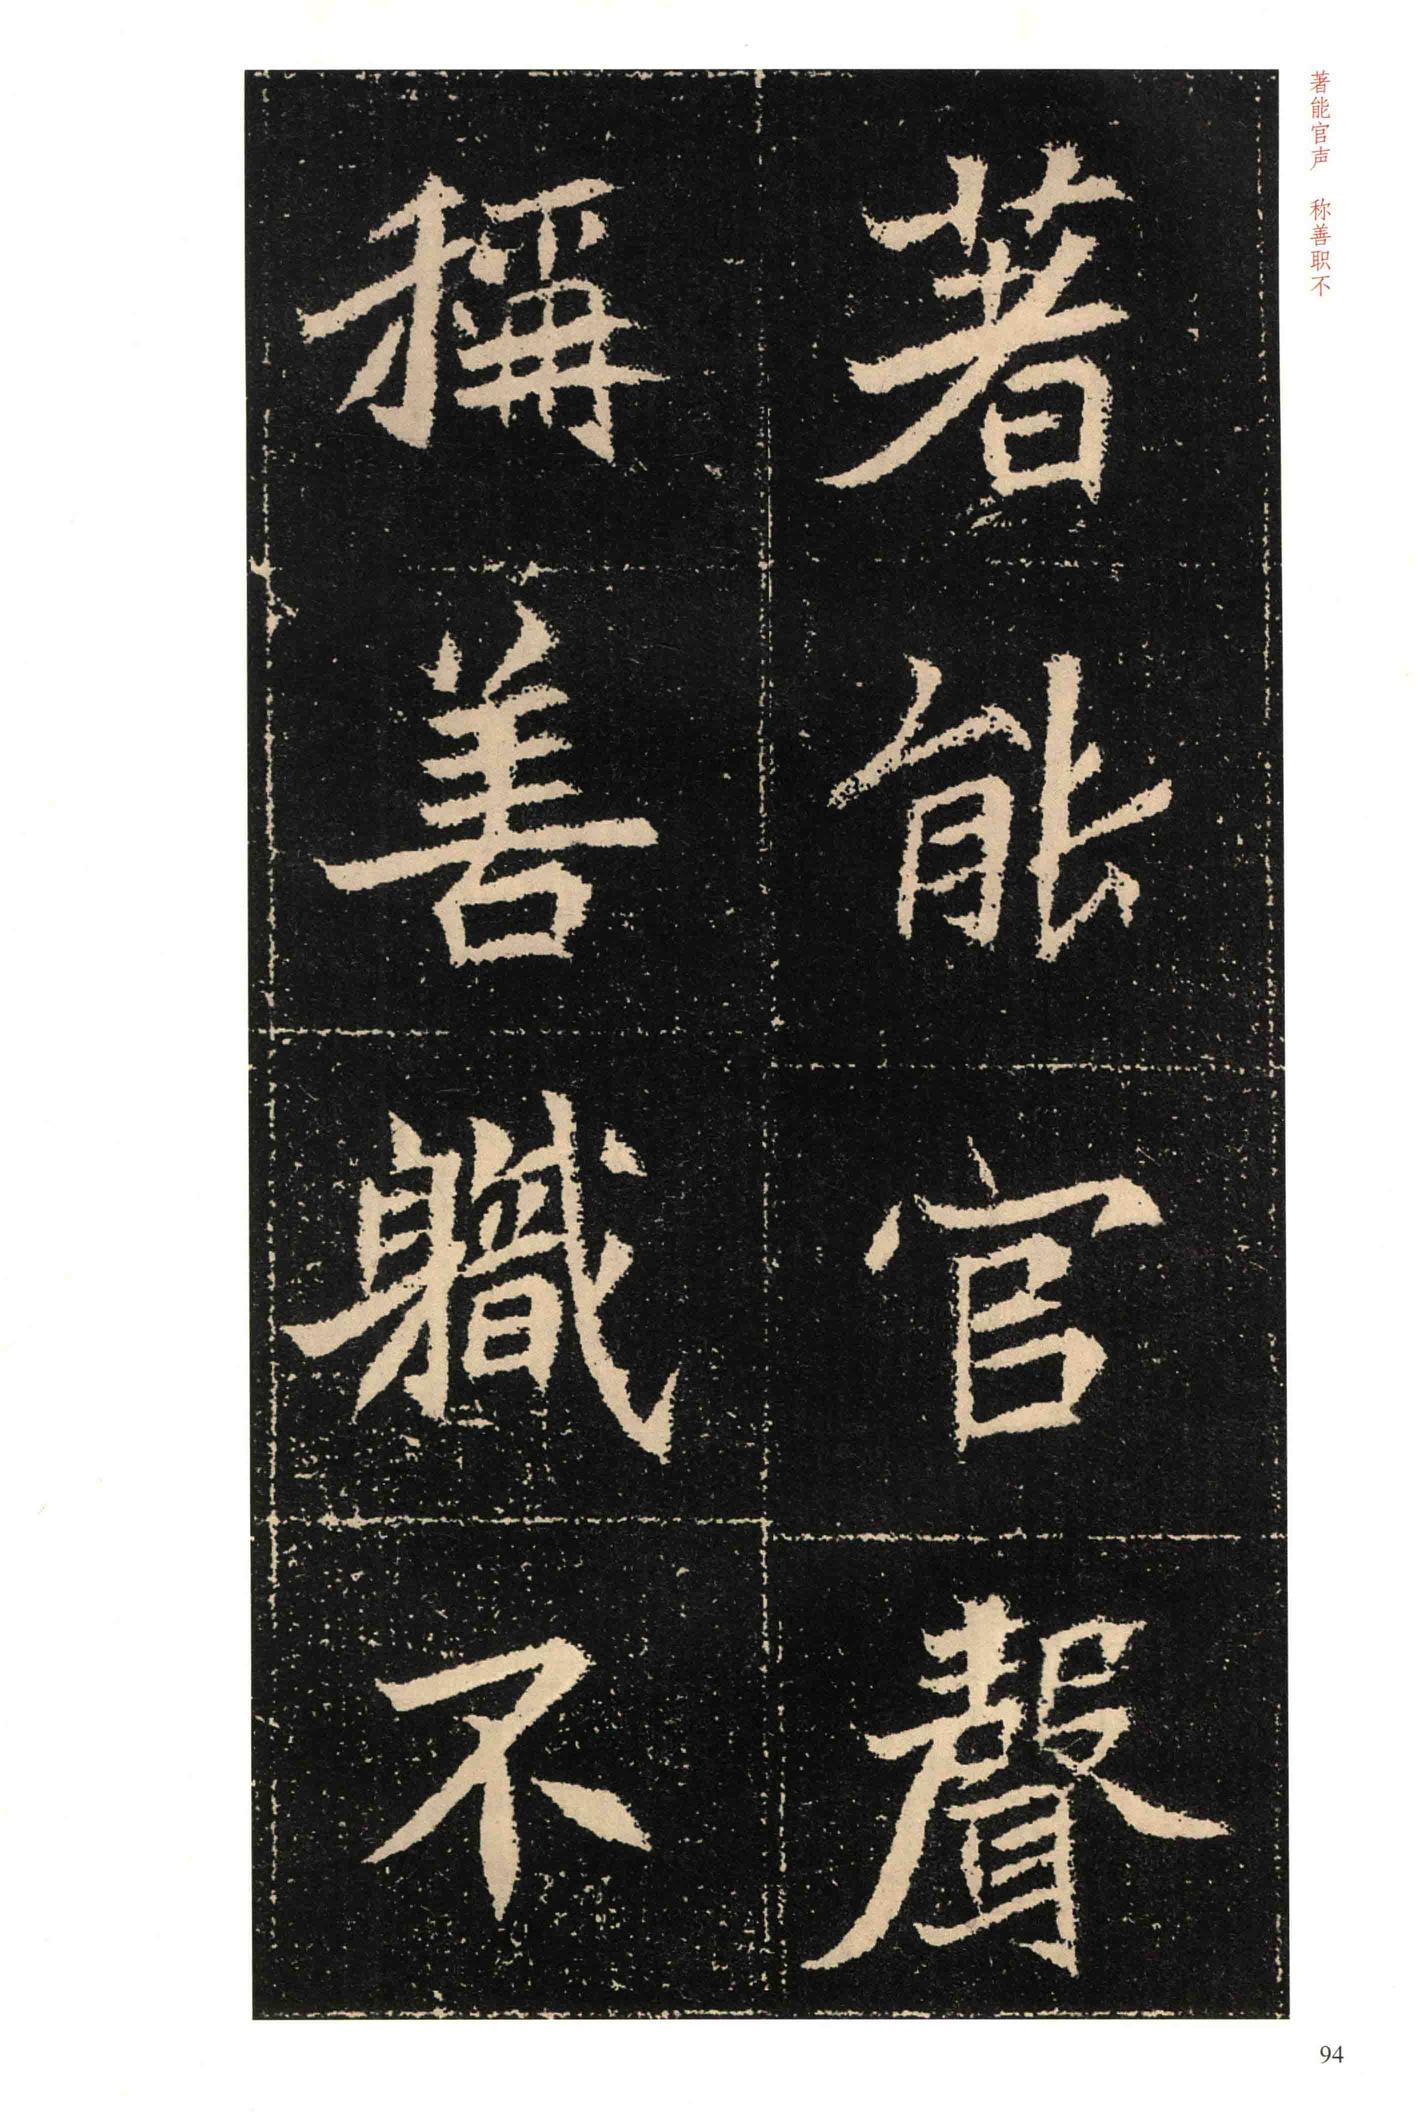 著能官聲
稱善職不
著能官声 称善职不
94